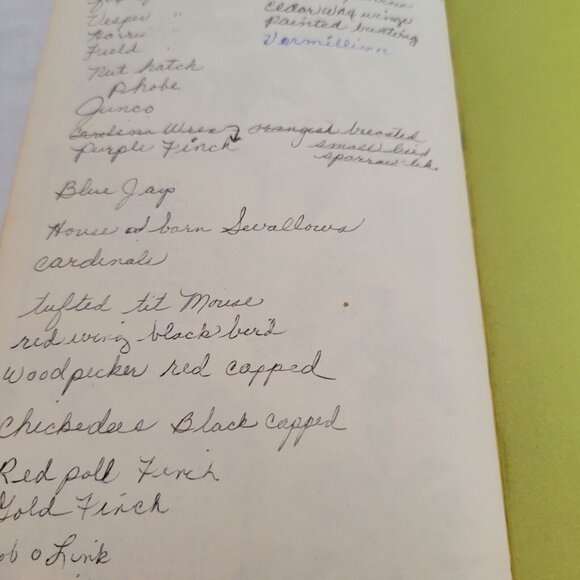 Cedar wax wings
Vesper "
painted bunting
Harris "
Vermillion
Field "
Nut hatch
Phobe
Junco
Carolina Wren orangish breasted
Purple Finch small bird
sparrow like
Blue Jays
House and barn Swallows
cardinals
tufted tit Mouse
red wing black bird
Woodpecker red capped
Chickedees Black capped
Red poll Finch
Gold Finch
ob o Link